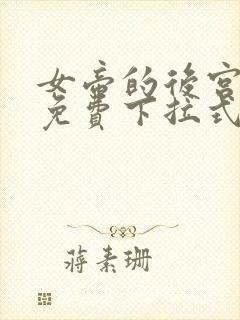 女帝的後宮
免費下拉式
蔣素珊